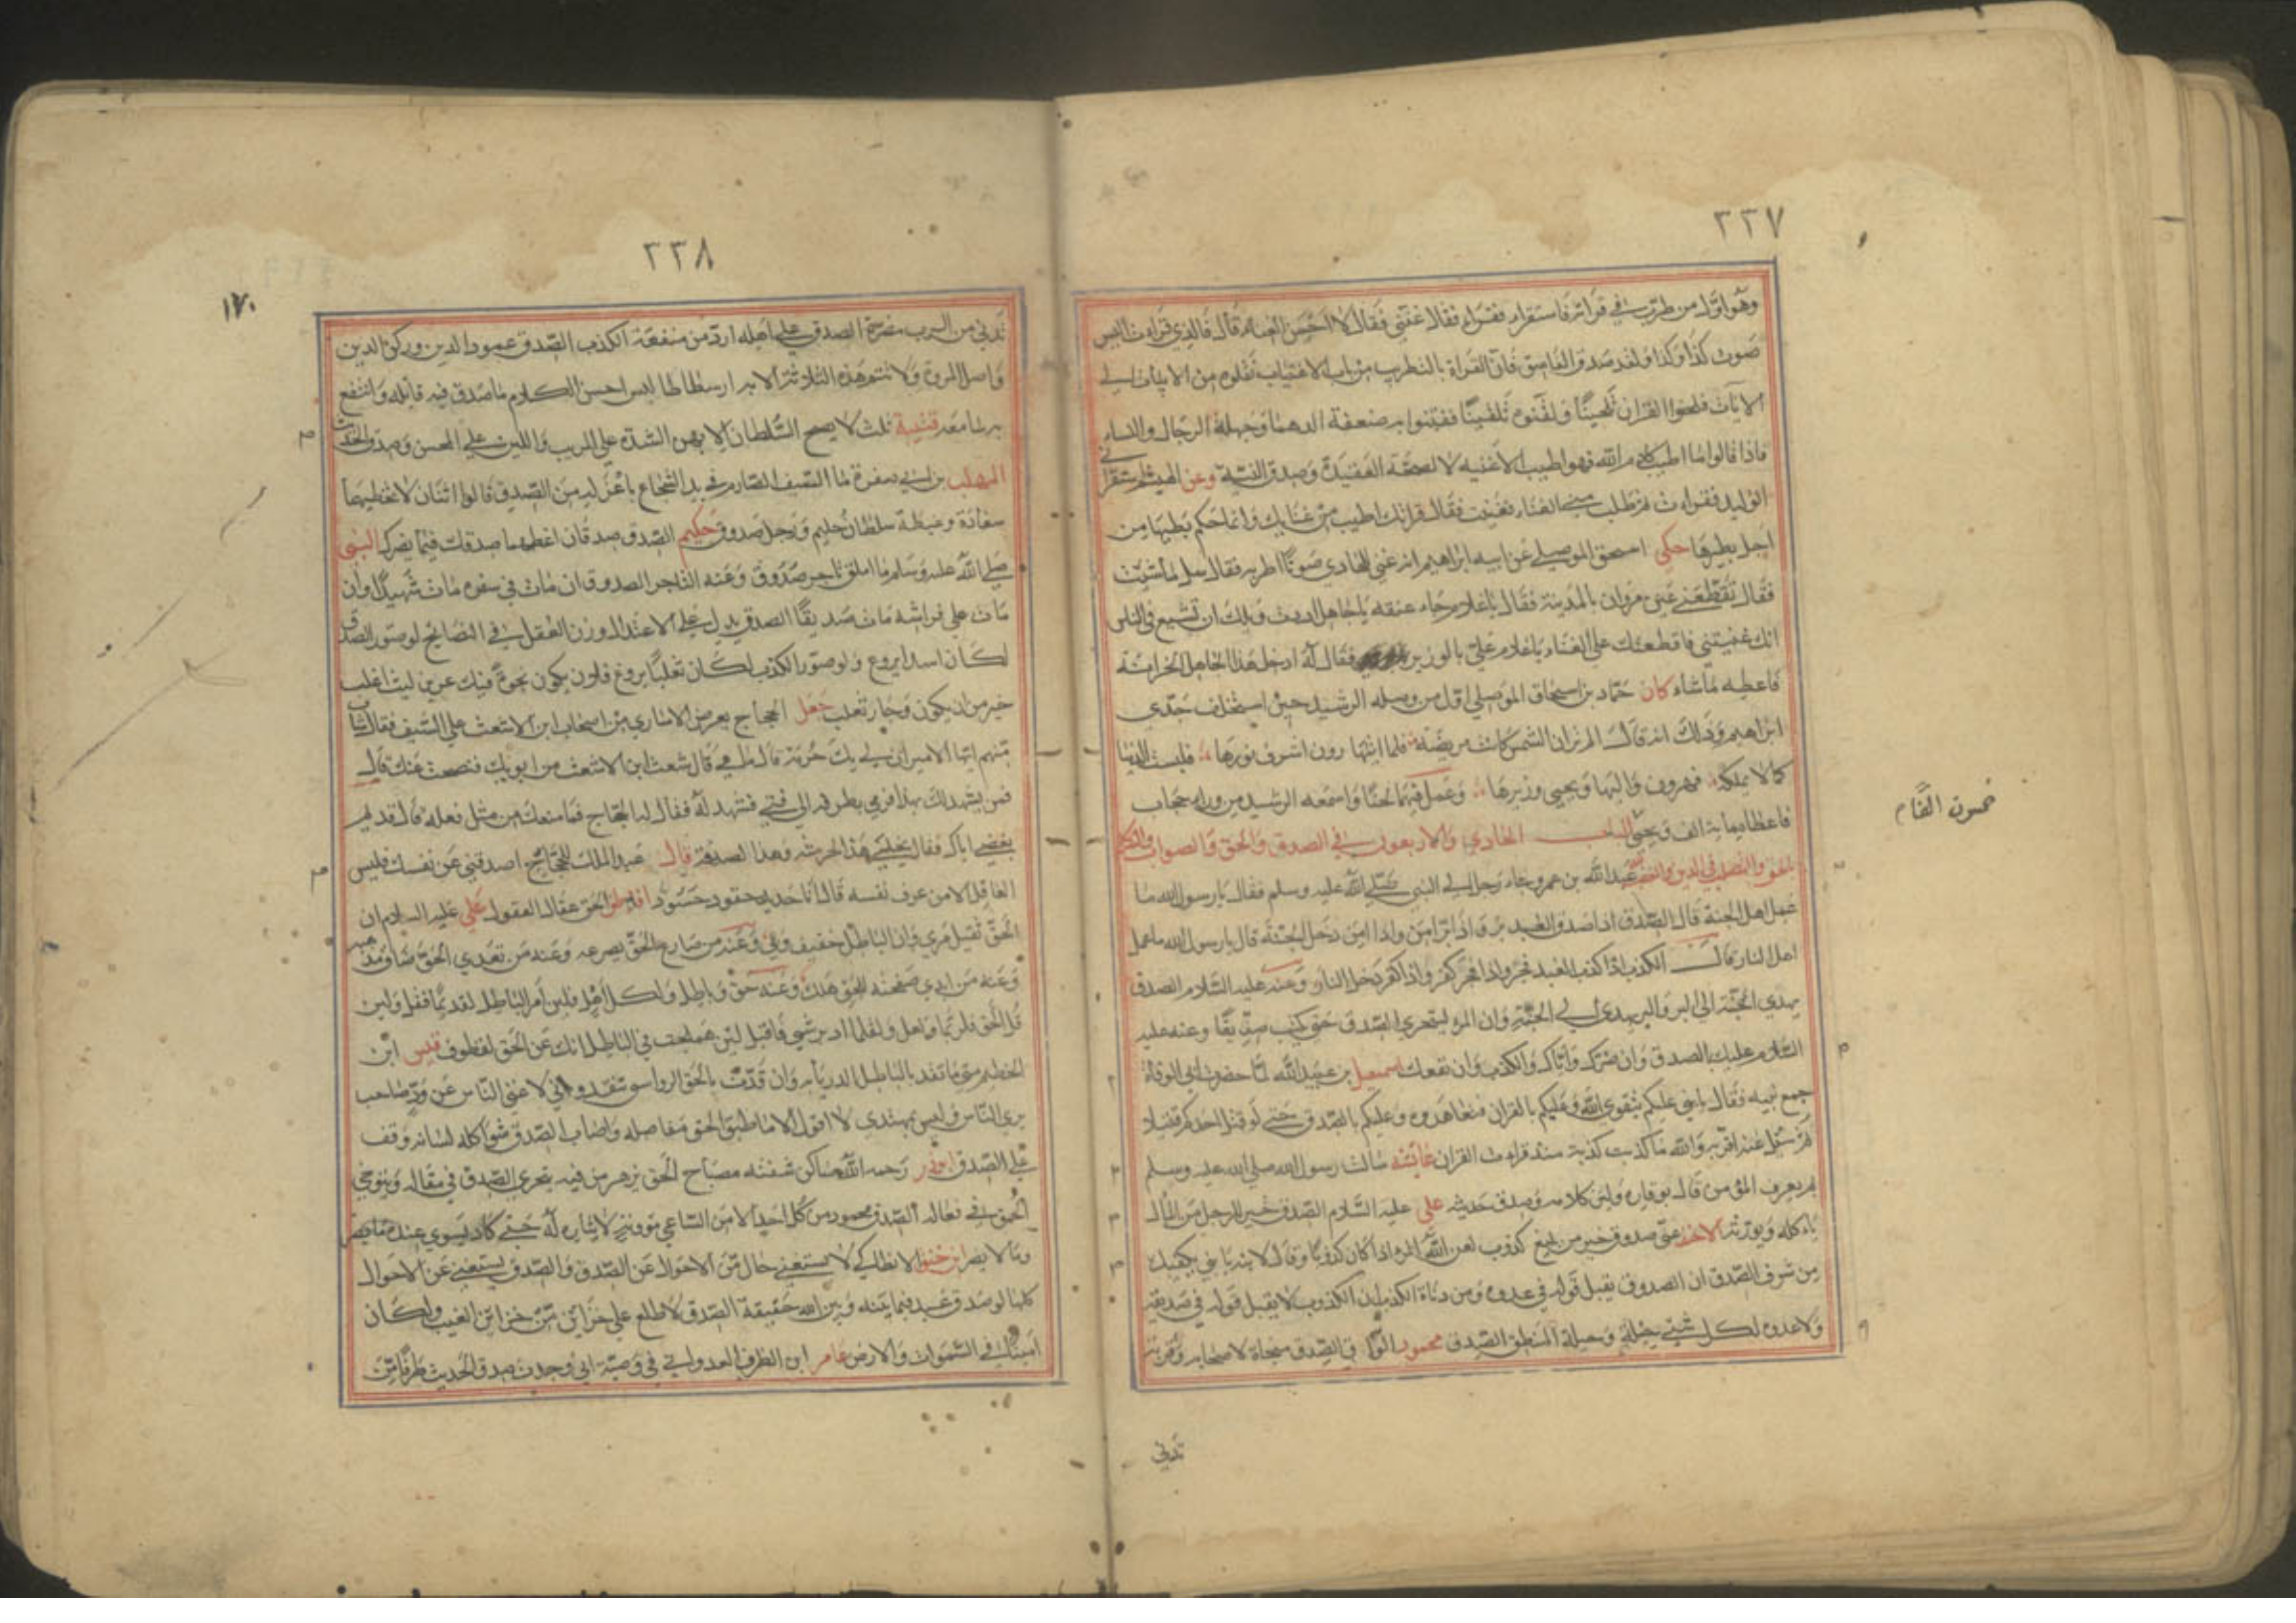 ٣٣٧
وهو اول من طرب في قراءته فاستقراه فقراه فقلا غنني فقال لا احسن الغناء قال فالذي قراءت اليس
صوت كذا وكذا ولقد صدق الفاسق فان القراة بالتطريب من باب الاغنيات
الايات فلحنوا القران تلحينا ولقنوه تلقينا ففتنوا به ضعفة الدهماء وجهلة الرجال والنساء
فاذا قالوا ما اطيب كلام الله فهو اطيب الاغنيه لا لصحة العقيدة وصدق النية وعن الهيثم استقراني
الوليد فقراءت ثم طلب مني الغناء فغنيت فقال قرانك اطيب من غنايك وانما حكم بطيبها من
اجل بطيرها حكى اسحق الموصلي عن ابيه ابراهيم انه غنى للهادي صوتا اطربه فقال سل ما شئت
فقال تقطعني عين مروان بالمدينة فقال يا غلام جاء عنقه يا جاهل اردت ويلك ان تشيع في الناس
انك غنيتني فاقطعتك على الغناء يا غلام علي بالوزير فقال له ادخل هذا الجاهل الخزانة
فاعطه ما شاء كان حماد بن اسحاق الموصلي اول من وصله الرشيد حين استخلف جدي
ابراهيم وذلك انه قال الم تر ان الشمس كانت مريضة فلما اتيتها رون اشرف نورها فلبست الدنيا
جمالا بملكه فهرون واليها ويحيى وزيرها وعمل فيهما لحنا واسمعه الرشيد من وراء حجاب
فاعطاه ماية الف ويحيى الباب الحادي والاربعون في الصدق والحق والصواب والتكلم
بالحق والتصلب في الدين والغضب عبد الله بن عمرو جاء رجل الى النبي صلى الله عليه وسلم فقال يا رسول الله ما
عمل اهل الجنة قال الصدق اذا صدق العبد بر واذا بر امن واذا امن دخل الجنة قال يا رسول الله ما عمل
اهل النار قال الكذب اذا كذب العبد فجر واذا فجر كفر واذا كفر دخل النار وعنه عليه السلام الصدق
يهدي الى البر والبر يهدي الى الجنة وان المرء ليتحرى الصدق حتى يكتب صديقا وعنه عليه
السلام عليك بالصدق وان ضرك واياك والكذب وان نفعك اسمعيل بن عبيد الله لما حضرت ابي الوفاة
جمع بنيه فقال يا بني عليكم بتقوى الله وعليكم بالقران فتعاهدوه وعليكم بالصدق حتى لو قتل احدكم قتيلا
ثم سئل عنه اقر به والله ما كذبت كذبة منذ قراءت القران عائشه سالت رسول الله صلى الله عليه وسلم
بم يعرف المؤمن قال بوقاره ولين كلامه وصدق حديثه علي عليه السلام الصدق خير للرجل من المال
ياءكله ويورثه الاخر عيي صدوق خير من بليغ كذوب لعن الله المرء اذا كان كذوبا وقال لابنه يا بني يكفيك
من شرف الصدق ان الصدوق يقبل قوله في عدوه ومن دناءة الكذب ان الكذوب لا يقبل قوله في صديقه
ولا عدوه لكل شيئ حيلة وحيلة المنطق الصدق محمود الوراق الصدق منجاة لاصحابه وقربة
تدني
خمسون الفًا م
٣٣٨
١٧٠
تدني من الرب مضرة الصدق على اهله ارد من منفعة الكذب الصدق عمود الدين وركن الدين
واصل المروة ولا تتم هذه الثلاثة الا به ارسطاطاليس احسن الكلام ما صدق فيه قايله وانتفع
به سامعه قتيبة ثلث لا يصح السلطان الا بهن الشدة على المريب واللين على المحسن وصدق الحديث
المهلب بن ابي صفرة ما السيف الصارم في يد الشجاع باعز له من الصدق قالوا اثنان لا تخطيهما
سعادة وغبطة سلطان حليم ورجل صدوق حكيم الصدق صدقان اعظمهما صدقك فيما يضرك النبي
صلى الله عليه وسلم ما املق تاجر صدوق وعنه التاجر الصدوق ان مات في سفره مات شهيدا وان
مات على فراشه مات صديقا الصدق يدل على الاعتدال وزن العقل في النصايح لو صور الصدق
لكان اسدا يروع ولو صور الكذب لكان ثعلبا يروغ فلان يكون نحوك فيك عرين ليث اغلب
خير من ان يكون وجار ثعلب جعل الحجاج يعرض الاسارى من اصحاب ابن الاشعث على السيف فقال شاب
منهم ايها الامير ان لي بك حرمة قال ما هي قال شعث ابن الاشعث من ابويك فنصحت عنك قال
فمن يشهد لك بهذا فرمى بطرفه الى فتى فشهد له فقال له الحجاج فما منعك من مثل فعله قال قديم
بغضي اياك فقال يخلى هذا لحرمته وهذا لصدقه قال عبد الملك للحجاج اصدقني عن نفسك فليس
العاقل الا من عرف نفسه قال انا حديد حقود حسود الحق عقال العقول علي عليه السلام ان
الحق ثقيل مري وان الباطل خفيف وبي وعنه من صارع الحق يصرعه وعنه من تعدى الحق ضاق مذهبه
وعنه من ابدى صفحته للحق هلك وعنه حق وباطل ولكل اهل فلئن امر الباطل لقديما فعل ولئن
قل الحق فلربما ولعل ولقلما ادبر شيء فاقبل لئن هملجت في الباطل انك عن الحق لقطوف قيس ابن
الخطيم متى ما تقد بالباطل الحق ياءبه وان قدت بالحق الرواسي تنقد واني لاغنى الناس عن ود صاحب
يرى الناس وليس بمهتدي لا اقول الا ما طبق الحق مفاصله واصاب الصدق شواكله لسانه وقف
على الصدق ابو ذر رحمه الله مصباح الحق يزهر من فيه يتحرى الصدق في مقاله ويتوخى
الحق في فعاله الصدق محمود من كل احد الا من الساعي
لا يستغني حال من الاحوال عن الصدق والصدق يستغني عن الاحوال
كلها لو صدق عبد فيما بينه وبين الله حقيقة الصدق لاطلع على خزاين من خزاين الغيب ولكان
امينا في السموات والارض عامر ابن الظرب العدواني في وصيته اني وجدت صدق الحديث طرفا من